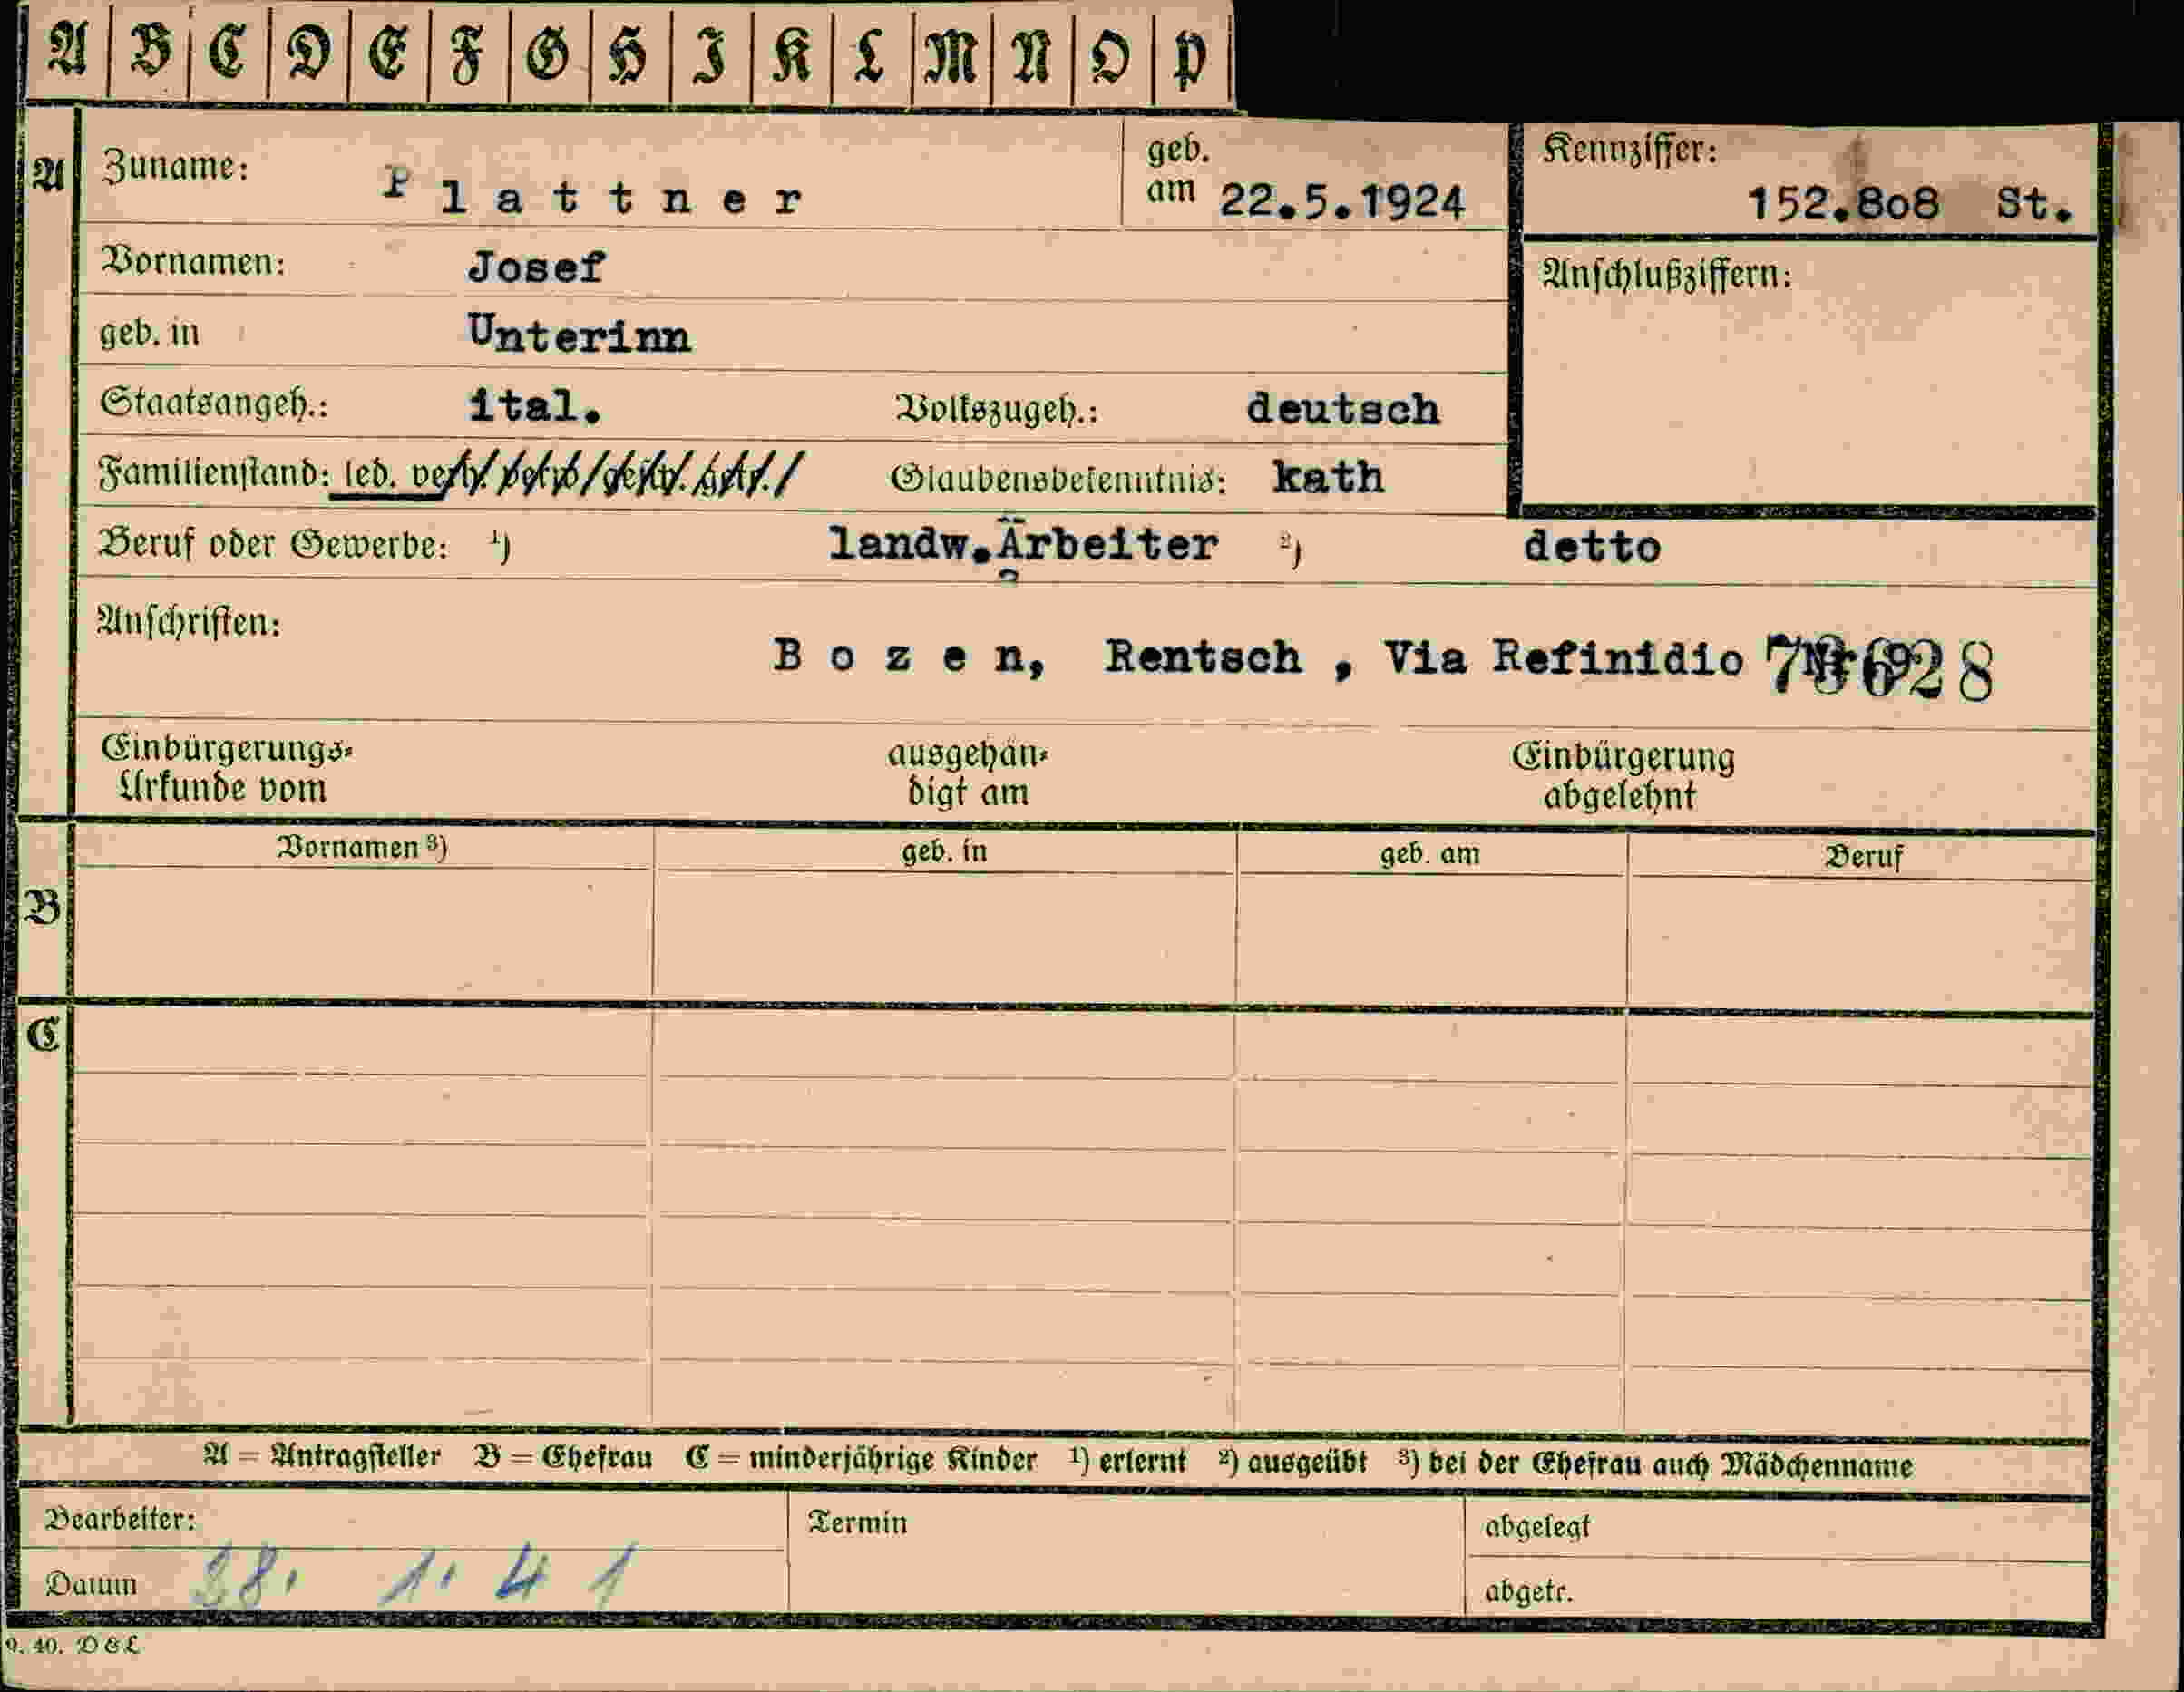 A B C D E F G H I K L M N O P
A
Zuname: Plattner
geb. am 22.5.1924
Kennziffer: 152.808 St.
Vornamen: Josef
Anschlußziffern:
geb. in Unterinn
Staatsangeh.: ital. Volkszugeh.: deutsch
Familienstand: led. Glaubensbekenntnis: kath
Beruf oder Gewerbe: 1) landw. Arbeiter 2) detto
Anschriften:
Bozen, Rentsch , Via Refinidio
Einbürgerungs-
Urkunde vom
ausgehän-
digt am
Einbürgerung
abgelehnt
Vornamen 3) geb. in geb. am Beruf
B
C
A = Antragsteller B = Ehefrau C = minderjährige Kinder 1) erlernt 2) ausgeübt 3) bei der Ehefrau auch Mädchenname
Bearbeiter: Termin abgelegt
Datum 28. 1. 41 abgetr.
9. 40. D & L